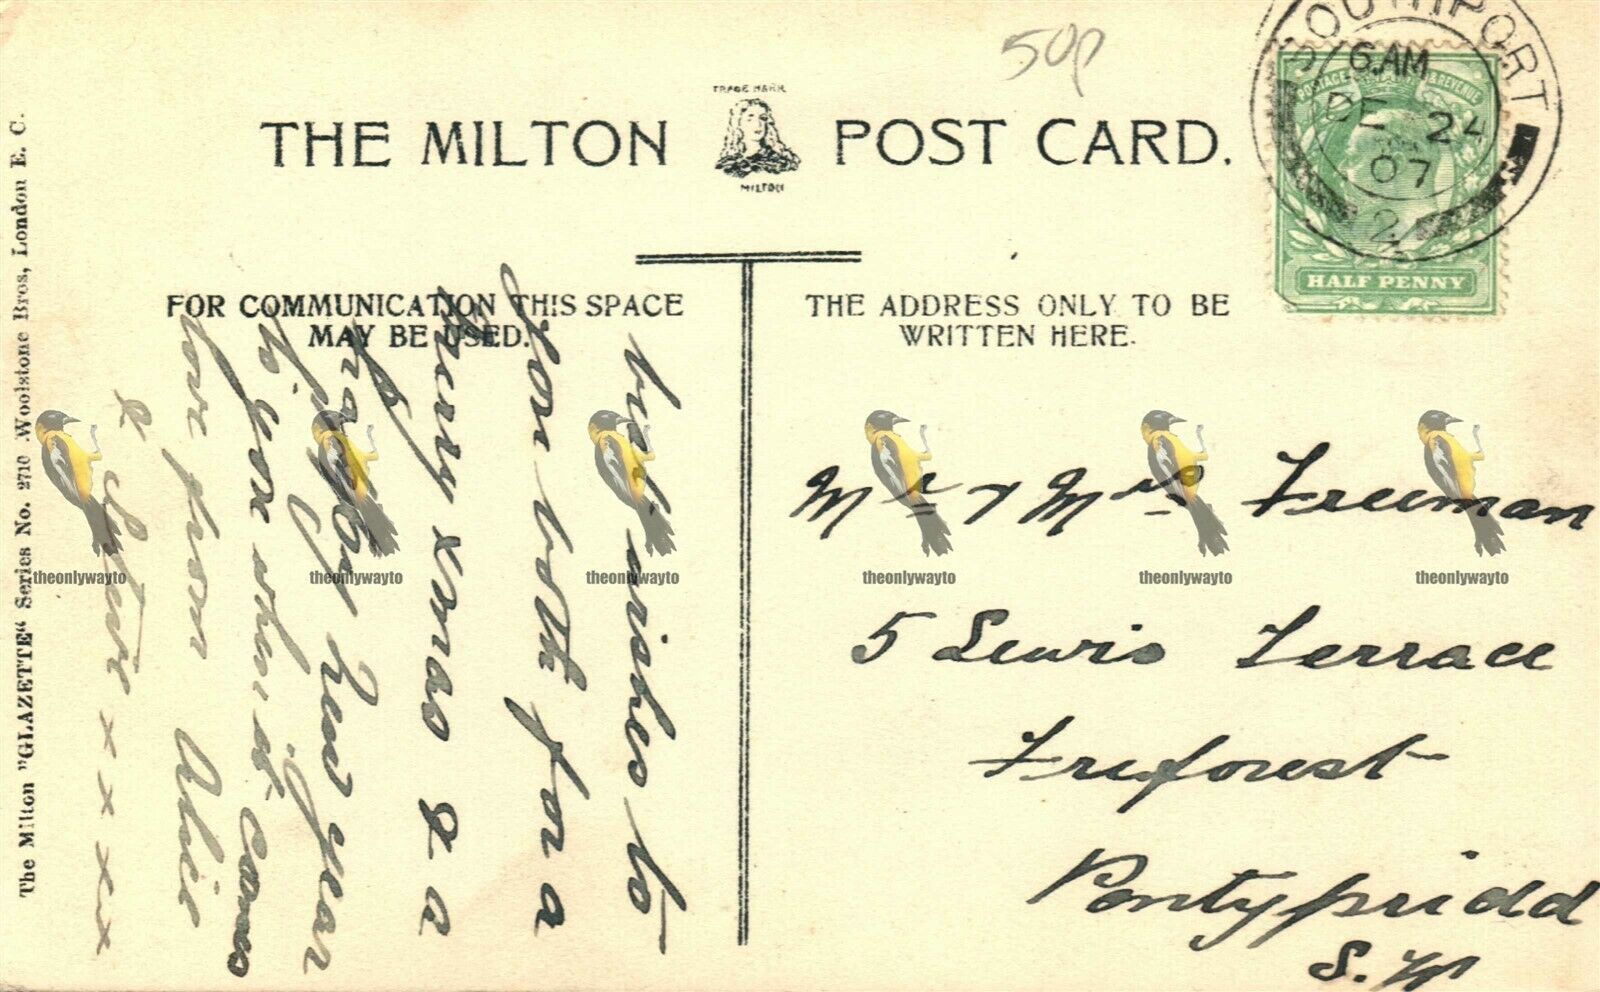 50p
SOUTHPORT
6. AM
DE 24
07
2
POSTAGE & REVENUE
HALF PENNY
TRADE MARK
THE MILTON POST CARD.
MILTON
FOR COMMUNICATION THIS SPACE
MAY BE USED.
THE ADDRESS ONLY TO BE
WRITTEN HERE.
The Milton "GLAZETTE" Series No. 2710 Woolstone Bros, London E. C.
best wishes to
you both for a
merry Xmas & a
happy New Year
to you when it comes
love from Alice
& x x x x
Mr & Mrs Freeman
5 Lewis Terrace
Treforest
Pontypridd
S. W
theonlywayto
theonlywayto
theonlywayto
theonlywayto
theonlywayto
theonlywayto